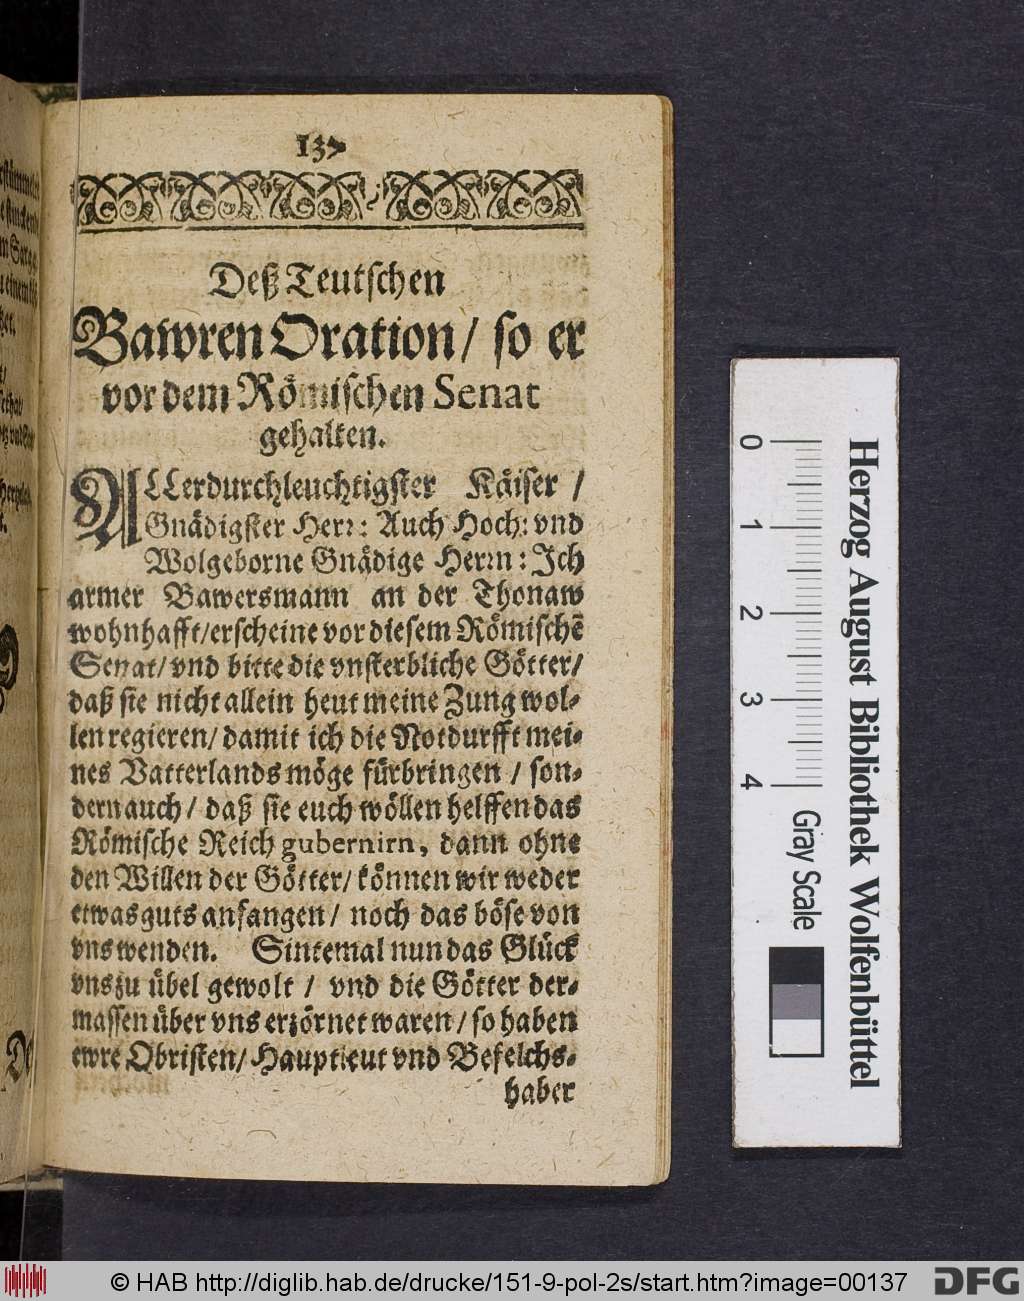 137
Deß Teutschen
Bawren Oration / so er
vor dem Römischen Senat
gehalten.
ALLerdurchleuchtigster Käiser /
Gnädigster Herr: Auch Hoch: vnd
Wolgeborne Gnädige Herrn: Ich
armer Bawersmann an der Thonaw
wohnhafft/erscheine vor diesem Römischē
Senat/ vnd bitte die vnsterbliche Götter/
daß sie nicht allein heut meine Zung wol-
len regieren/ damit ich die Notdurfft mei-
nes Vatterlands möge fürbringen / son-
dern auch / daß sie euch wöllen helffen das
Römische Reich gubernirn, dann ohne
den Willen der Götter/ können wir weder
etwas guts anfangen / noch das böse von
vns wenden. Sintemal nun das Glück
vns zu übel gewolt / vnd die Götter der-
massen über vns erzörnet waren / so haben
ewre Obristen/ Hauptleut vnd Befelchs-
haber
0 1 2 3 4
Gray Scale
Herzog August Bibliothek Wolfenbüttel
© HAB http://diglib.hab.de/drucke/151-9-pol-2s/start.htm?image=00137
DFG